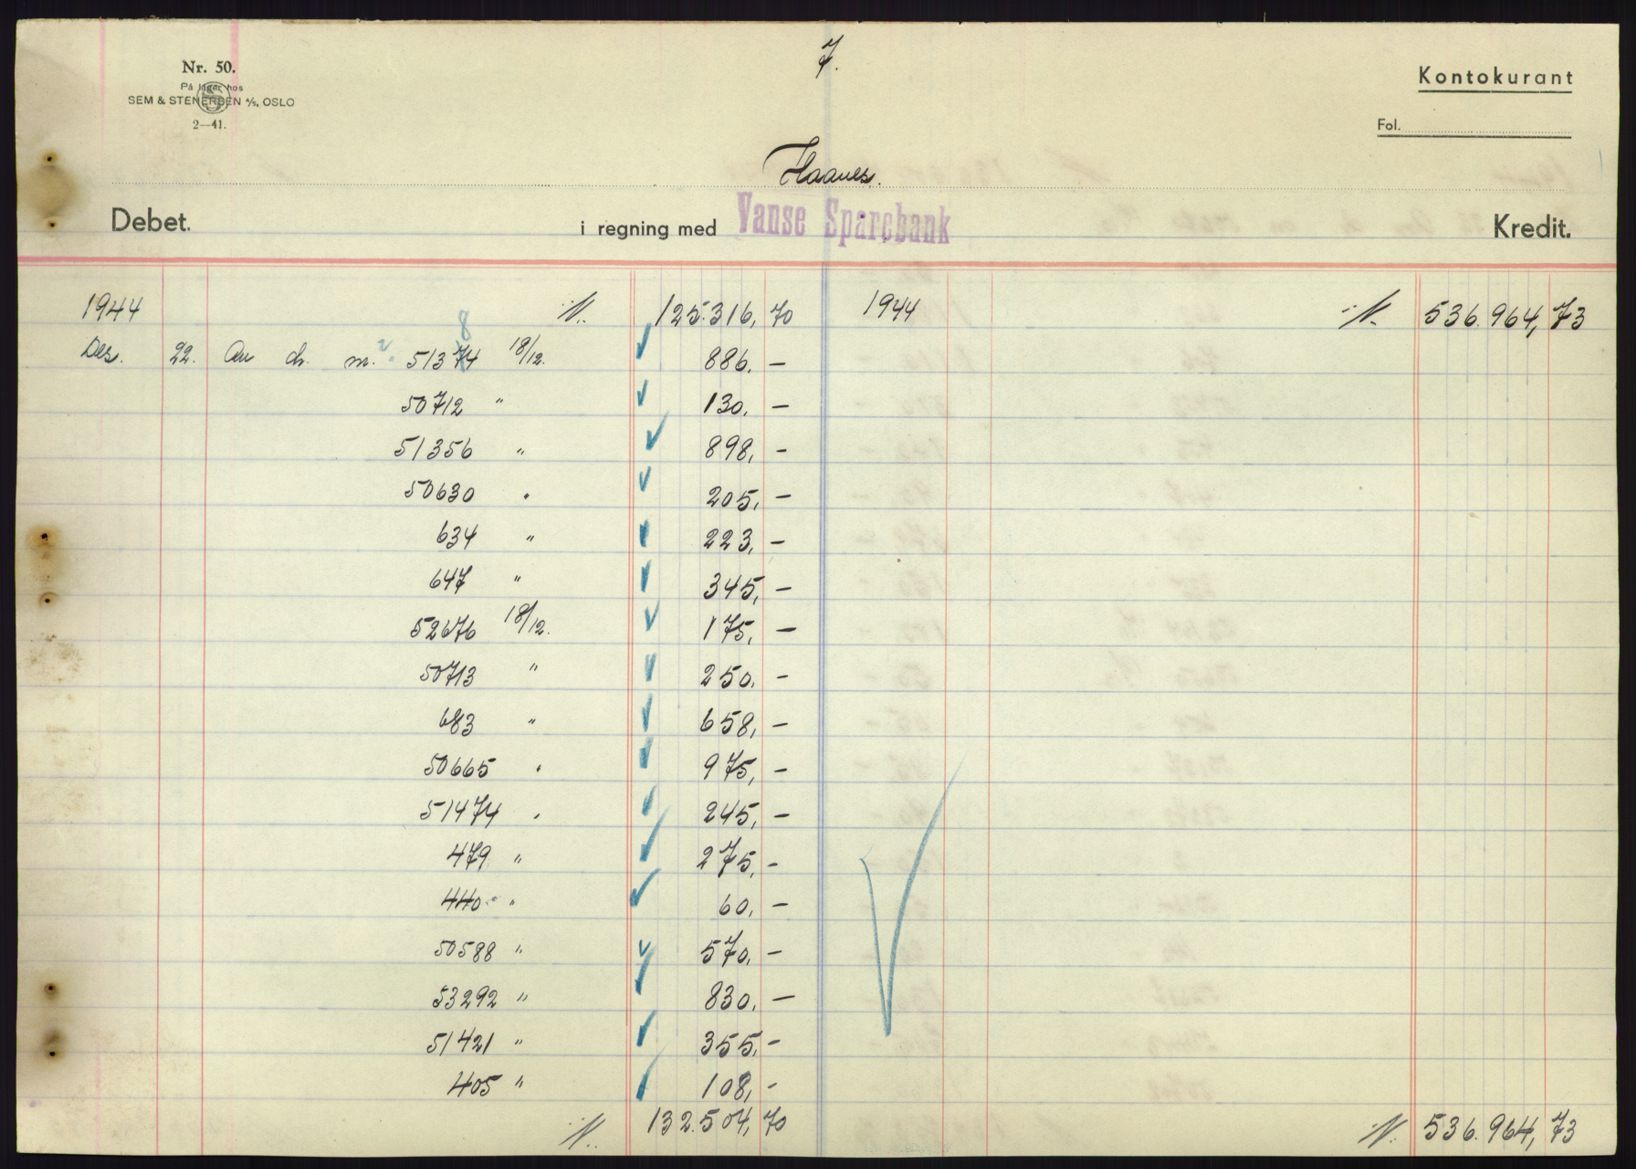 7.
Nr. 50.
På lager hos
SEM & STENERSEN A/S, OSLO
2—41.
Kontokurant
Fol.
Haanes.
Debet. i regning med Vanse Sparebank Kredit.
1944 125.316,70 1944 536.964,73
Des. 22. An ch. m. 51374 8 18/12. 886.—
50712 " 130.—
51356 " 898,—
50630 " 205,—
634 " 223,—
647 " 345,—
52676 18/12. 175,—
50713 " 250.—
683 " 658,—
50665 " 975,—
51474 " 245,—
479 " 275,—
440 " 60,—
50588 " 570.—
53292 " 830.—
51421 " 355,—
405 " 108,—
132.504,70 536.964,73